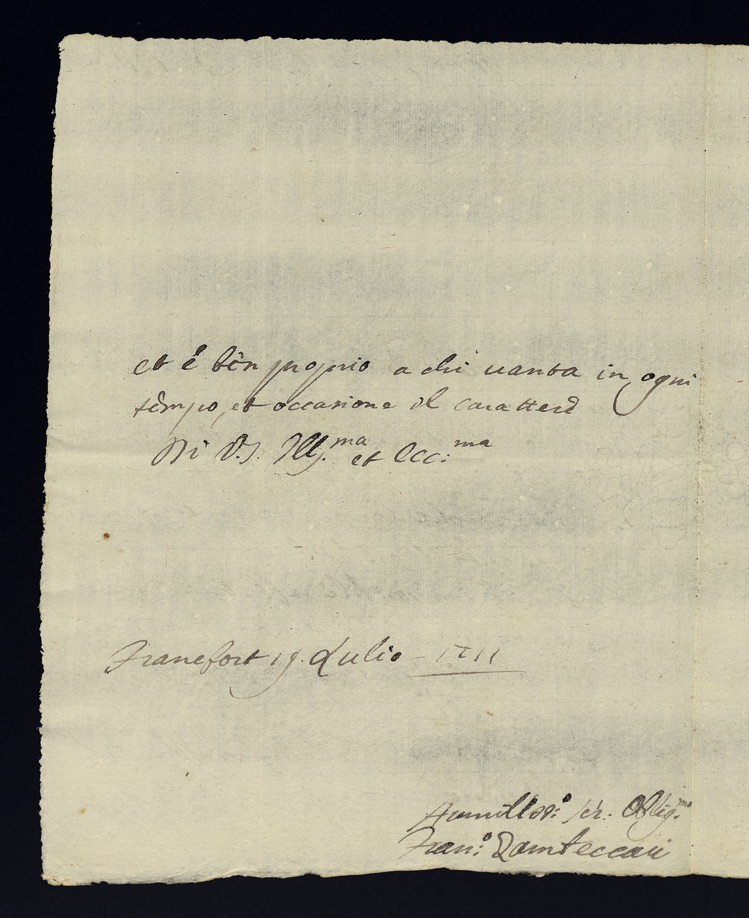 et é ben proprio a chi uanta in ogni
tempo, et occasione il carattere
Di V.S. Ill.ma et Ecc:ma
Francfort 19. Lulio - 1711
Humill.o: ser: Oblig.mo
Fran:o